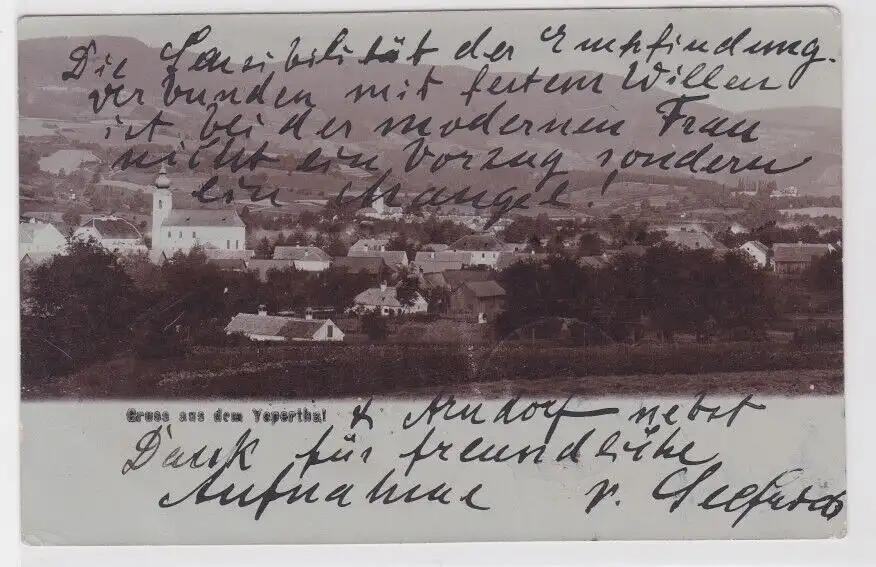 Die Sensibilität der Empfindung.
verbunden mit festem Willen
ist bei der modernen Frau
nicht ein Vorzug sondern
ein Mangel!
Gruss aus dem Ysperthal
& Arndorf nebst
Dank für freundliche
Aufnahme v.